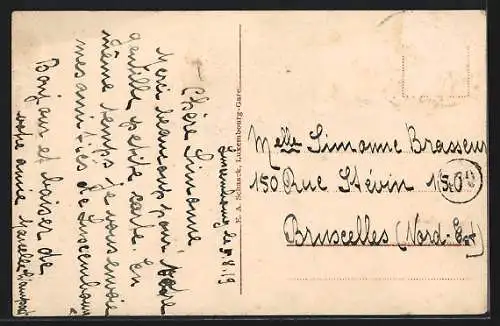 Luxembourg le 9.8.19
Chère Simonne
Merci beaucoup pour votre
gentille petite carte. En
même temps je vous envoie
mes amitiés de Luxembourg
Bonjour et baiser de
votre amie Marcelle
E. A. Schaack, Luxembourg-Gare.
Melle Simonne Brasseur
150 Rue Stévin 150
Bruxelles (Nord-Est)